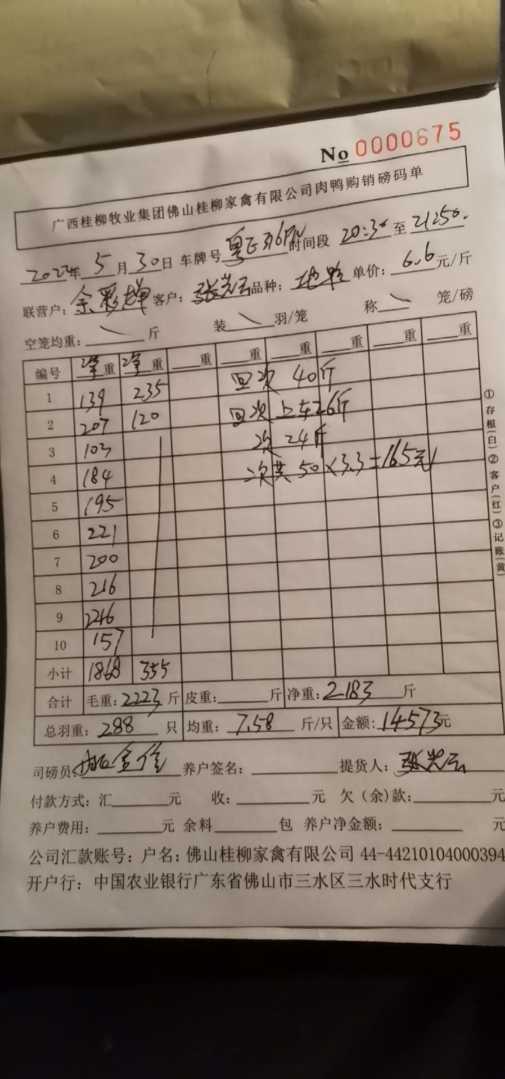 No 0000675
广西桂柳牧业集团佛山桂柳家禽有限公司肉鸭购销磅码单
2022年 5 月 30 日 车牌号 粤E 时间段 20:30 至 21:50
联营户: 余彩 客户: 张 品种: 单价: 6.6 元/斤
空笼均重: 斤 装 羽/笼 称 笼/磅
编号 2笼重 2笼重 重 重 重 重 重 重
1 139 235 回次 40斤
2 207 120 回次上车26斤
3 103 次 24斤
4 184 次共 50×3.3=165元
5 195
6 221
7 200
8 216
9 246
10 157
小计 1868 355
合计 毛重: 2223 斤 皮重: 斤 净重: 2183 斤
总羽重: 288 只 均重: 7.58 斤/只 金额: 14573元
司磅员: 养户签名: 提货人: 张
付款方式: 汇 元 收: 元 欠(余)款: 元
养户费用: 元 余料 包 养户净金额: 元
公司汇款账号: 户名: 佛山桂柳家禽有限公司 44-44210104000394
开户行: 中国农业银行广东省佛山市三水区三水时代支行
①存根(白)②客户(红)③记账(黄)